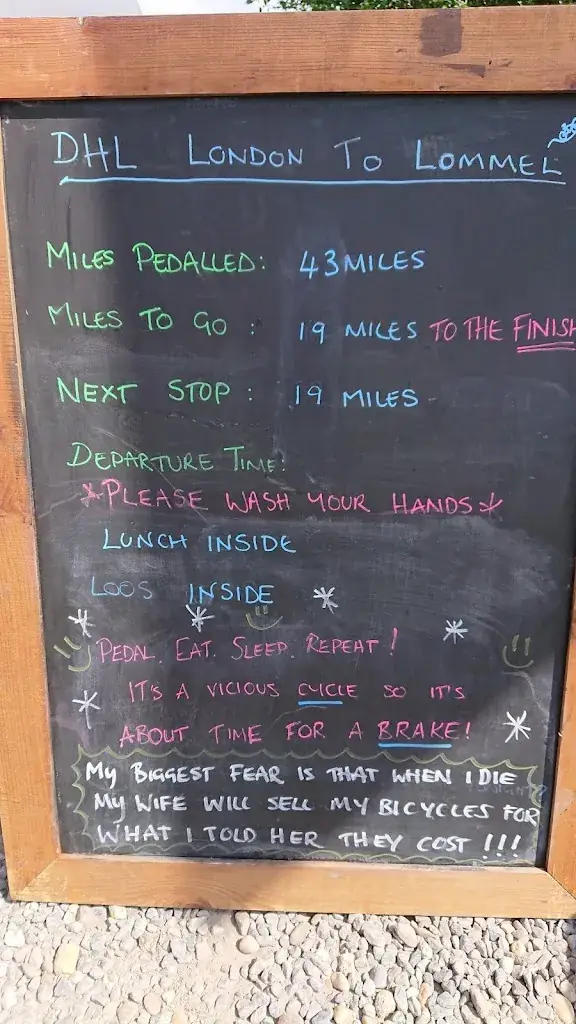 DHL LONDON TO LOMMEL
MILES PEDALLED: 43 MILES
MILES TO GO: 19 MILES TO THE FINISH
NEXT STOP: 19 MILES
DEPARTURE TIME:
*PLEASE WASH YOUR HANDS*
LUNCH INSIDE
LOOS INSIDE
PEDAL. EAT. SLEEP. REPEAT!
IT'S A VICIOUS CYCLE SO IT'S
ABOUT TIME FOR A BRAKE!
MY BIGGEST FEAR IS THAT WHEN I DIE
MY WIFE WILL SELL MY BICYCLES FOR
WHAT I TOLD HER THEY COST!!!